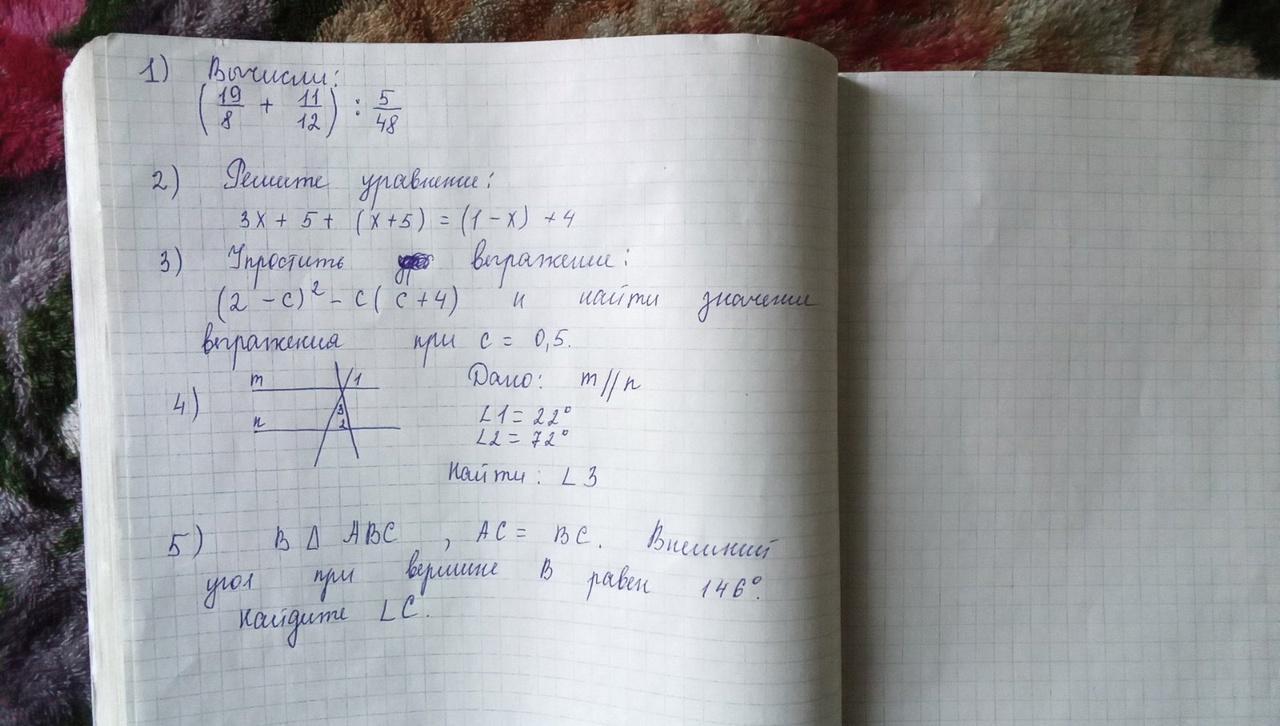 1) Вычисли:
(19/8 + 11/12) : 5/48
2) Решите уравнение:
3x + 5 + (x+5) = (1-x) +4
3) Упростить выражение:
(2-c)² - c(c+4) и найти значение
выражения при c = 0,5.
4) m 1 Дано: m//n
n 3 2 ∠1 = 22°
∠2 = 72°
Найти: ∠3
5) В Δ ABC, AC = BC. Внешний
угол при вершине B равен 146°.
Найдите ∠C.